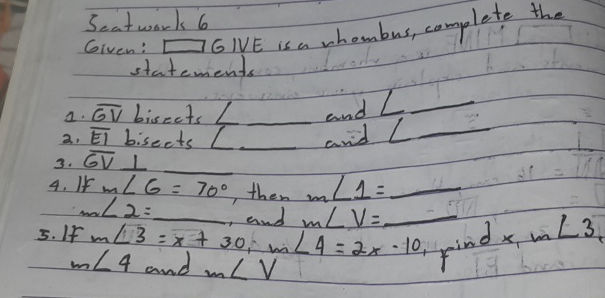 Seatwork 6
Given: ▭ GIVE is a rhombus, complete the
statements
1. GV bisects ∠ ____ and ∠ ____
2. EI bisects ∠ ____ and ∠ ____
3. GV ⊥ ____
4. If m∠G = 70°, then m∠1 = ____
m∠2 = ____, and m∠V = ____
5. If m∠3 = x + 30, m∠4 = 2x - 10, find x, m∠3,
m∠4 and m∠V